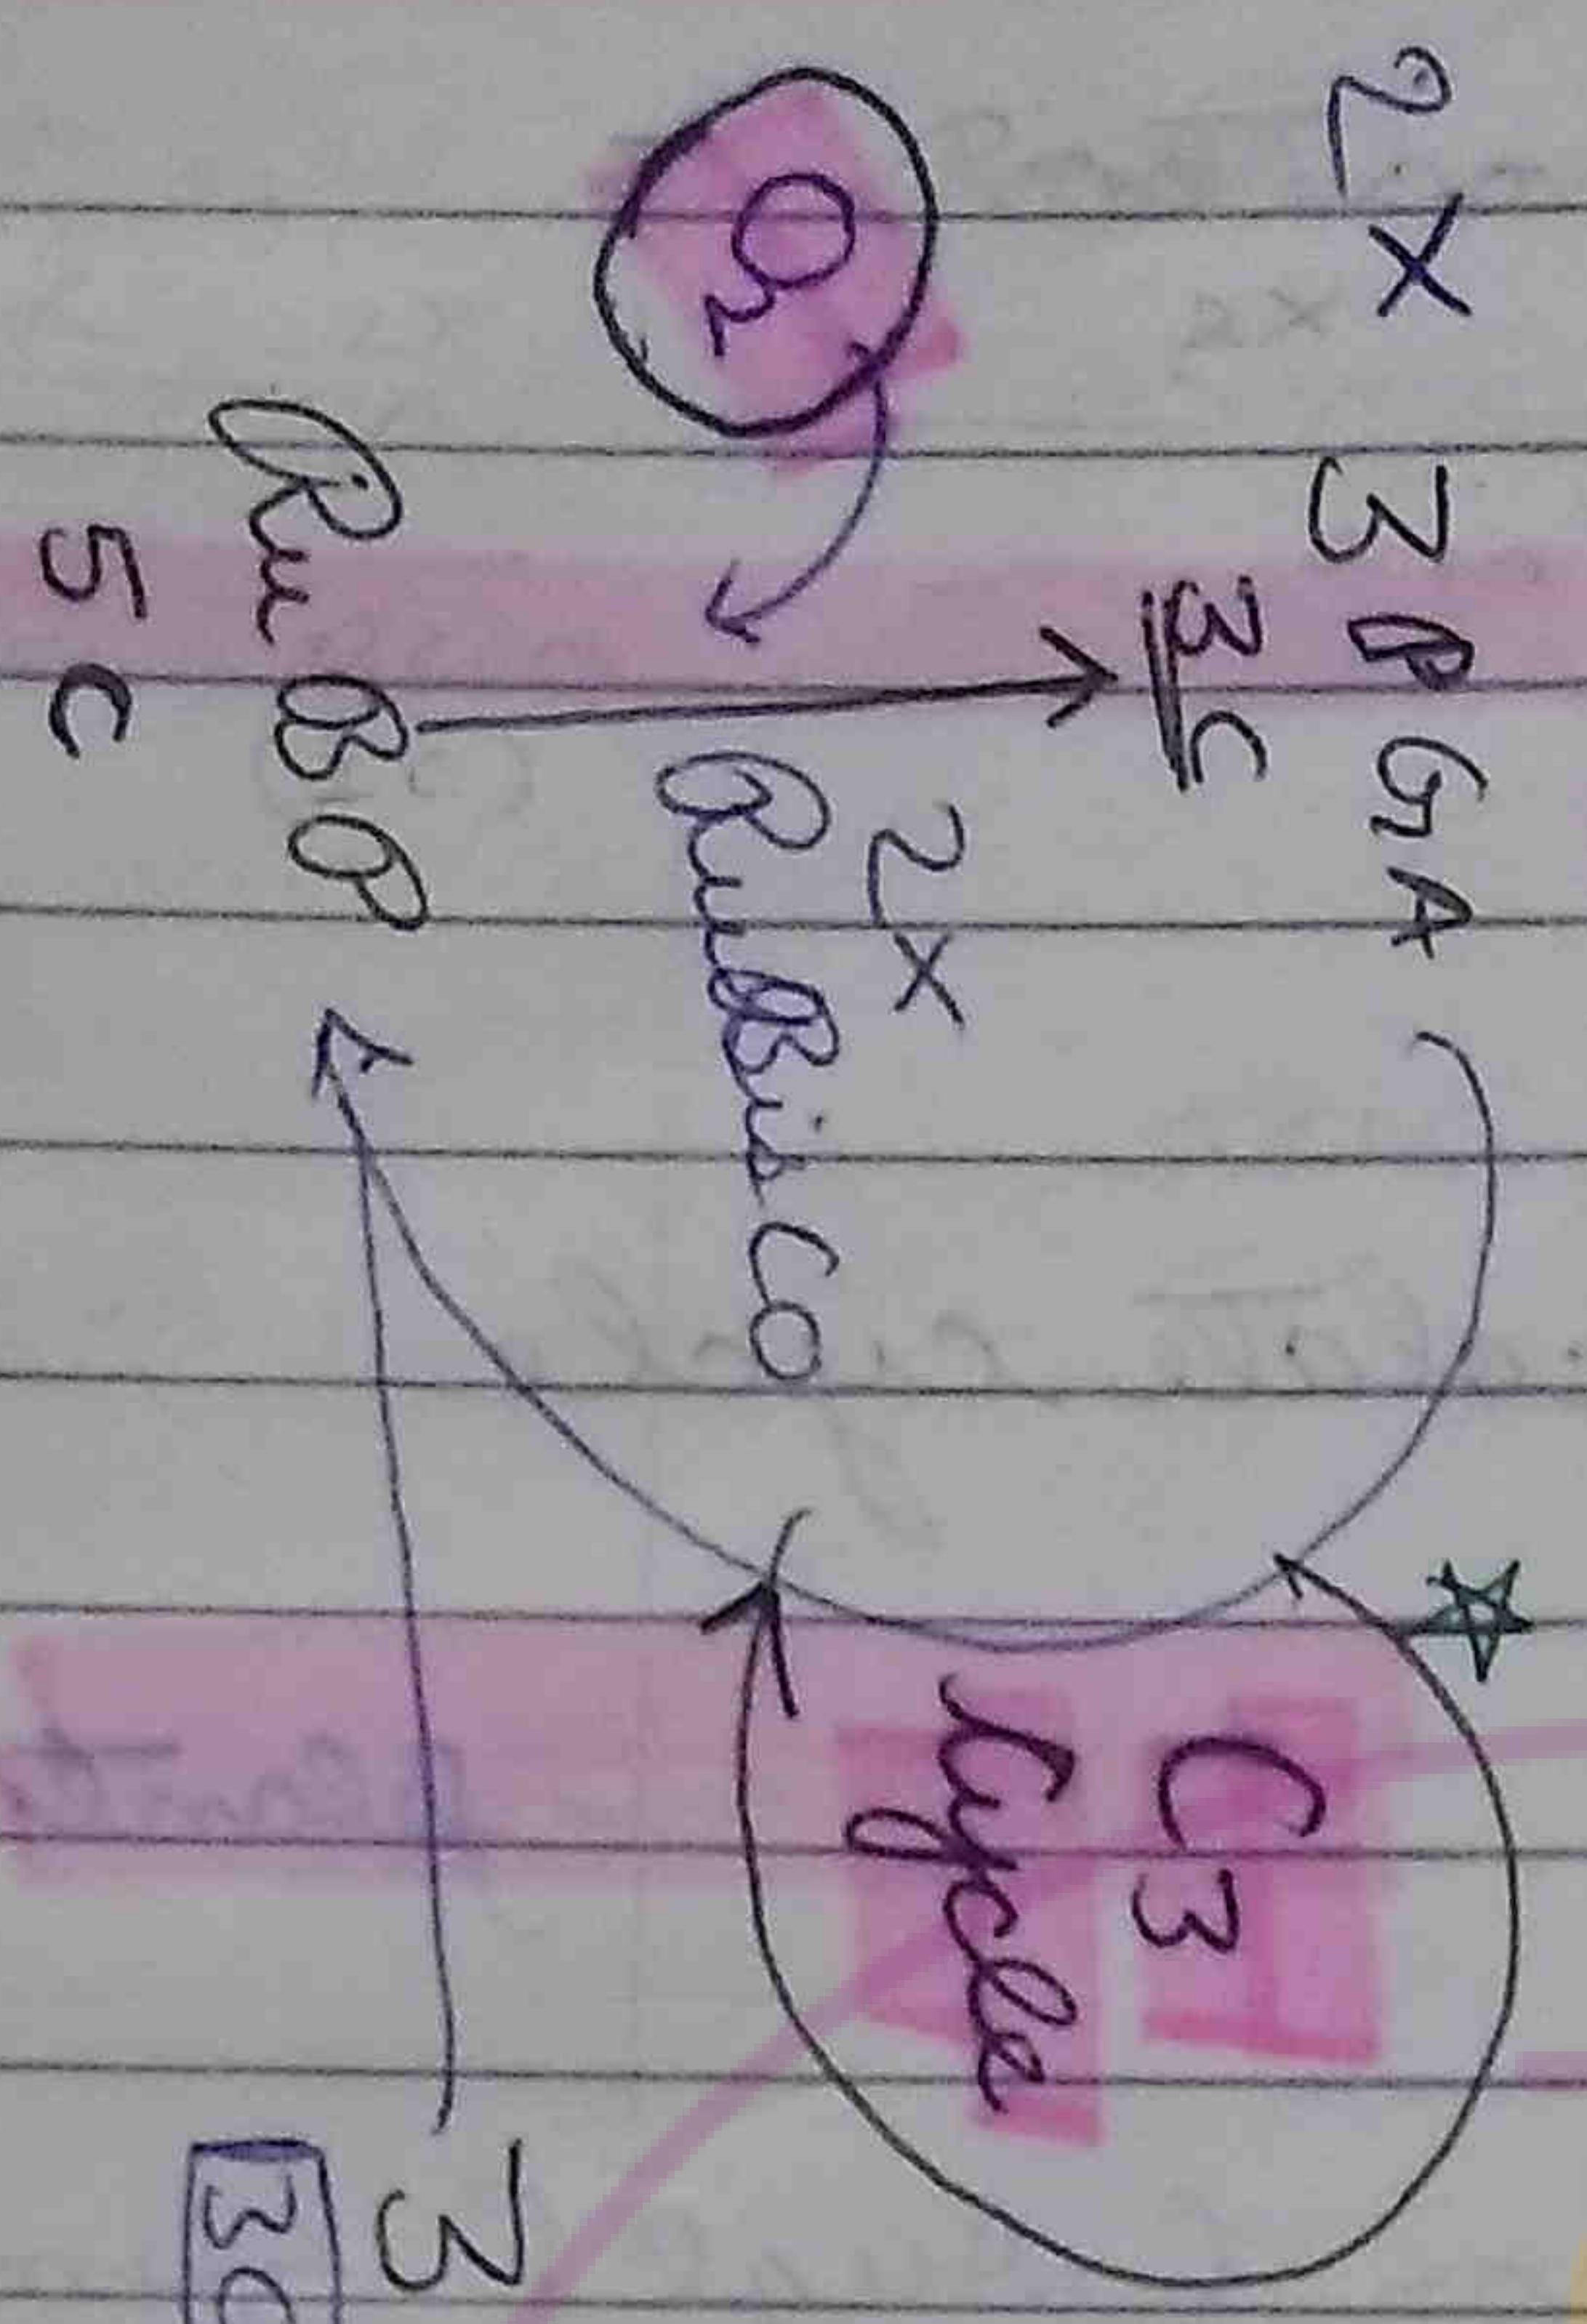 2 x 3 PGA
3C
O2
2x
RuBisCO
RuBP
5 C
C3
Cycle
3
3C